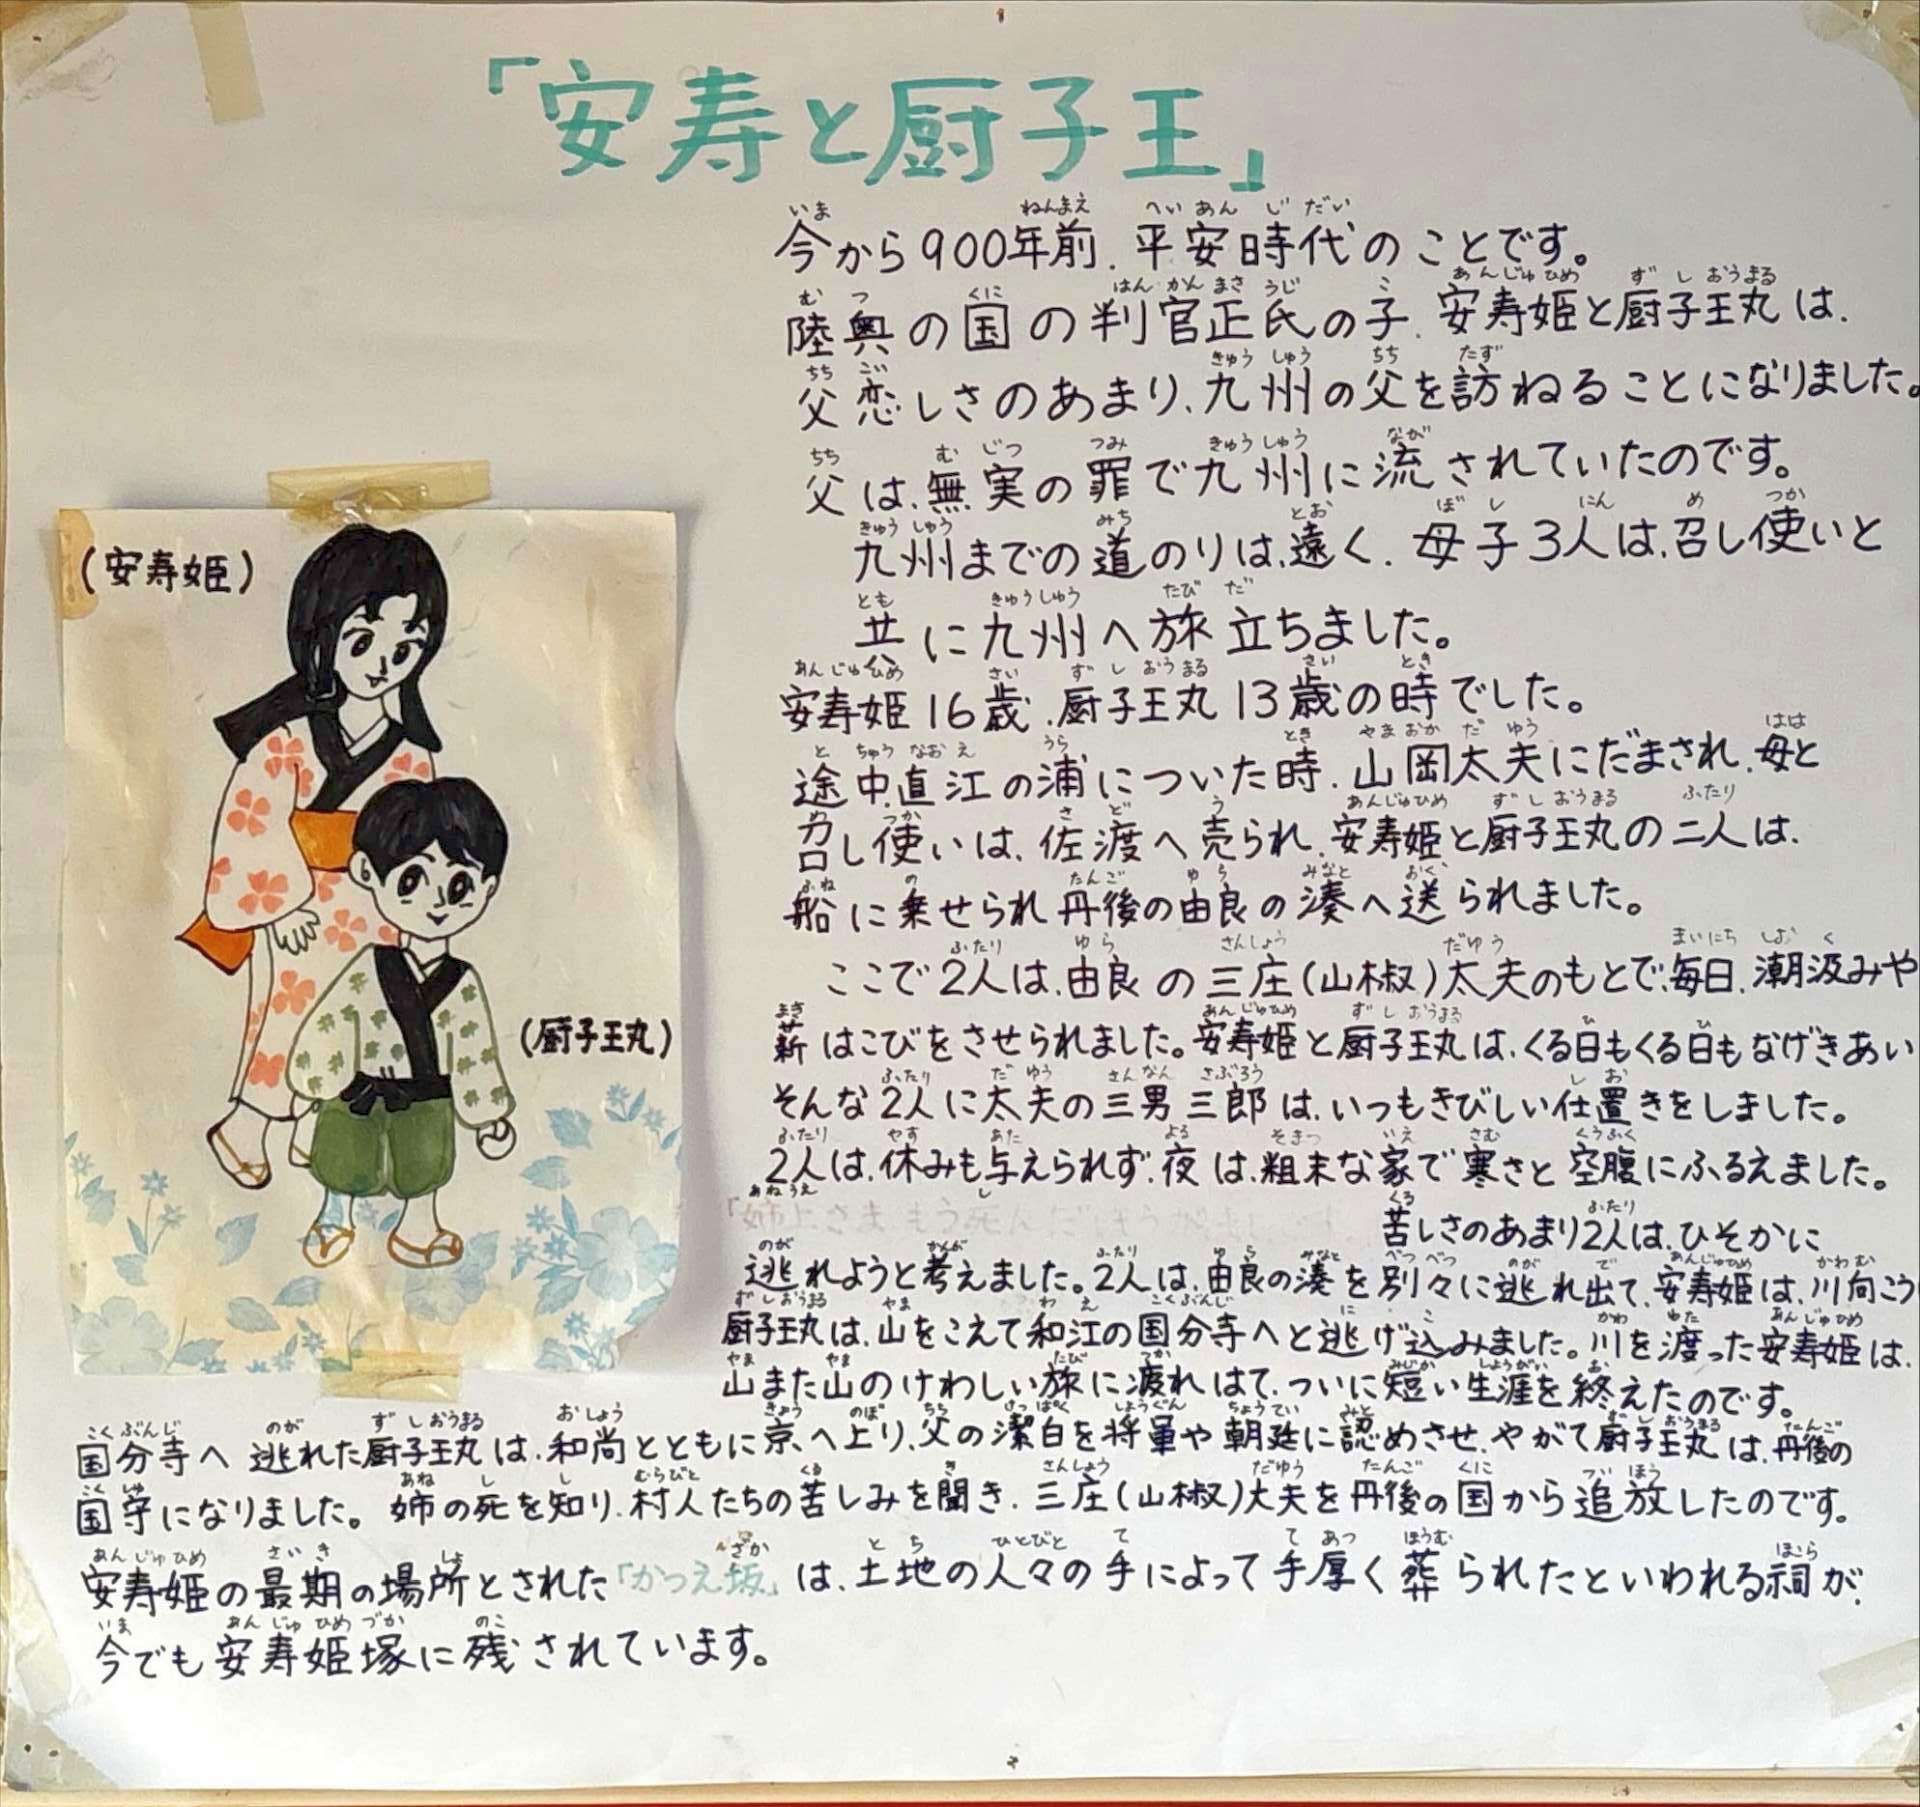 「安寿と厨子王」
今から900年前、平安時代のことです。
陸奥の国の判官正氏の子、安寿姫と厨子王丸は、
父恋しさのあまり、九州の父を訪ねることになりました。
父は、無実の罪で九州に流されていたのです。
九州までの道のりは、遠く、母子3人は、召し使いと
共に九州へ旅立ちました。
安寿姫16歳、厨子王丸13歳の時でした。
途中、直江の浦についた時、山岡太夫にだまされ、母と
召し使いは、佐渡へ売られ、安寿姫と厨子王丸の二人は、
船に乗せられ丹後の由良の湊へ送られました。
ここで2人は、由良の三庄(山椒)太夫のもとで、毎日、潮汲みや
薪はこびをさせられました。安寿姫と厨子王丸は、くる日もくる日もなげきあい
そんな2人に太夫の三男三郎は、いつもきびしい仕置きをしました。
2人は、休みも与えられず、夜は、粗末な家で寒さと空腹にふるえました。
苦しさのあまり2人は、ひそかに
逃れようと考えました。2人は、由良の湊を別々に逃れ出て、安寿姫は、川向こう
厨子王丸は、山をこえて和江の国分寺へと逃げ込みました。川を渡った安寿姫は、
山また山のけわしい旅に疲れはて、ついに短い生涯を終えたのです。
国分寺へ逃れた厨子王丸は、和尚とともに京へ上り、父の潔白を将軍や朝廷に認めさせ、やがて厨子王丸は、丹後の
国守になりました。姉の死を知り、村人たちの苦しみを聞き、三庄(山椒)太夫を丹後の国から追放したのです。
安寿姫の最期の場所とされた「かつえ坂」は、土地の人々の手によって手厚く葬られたといわれる祠が、
今でも安寿姫塚に残されています。
(安寿姫)
(厨子王丸)